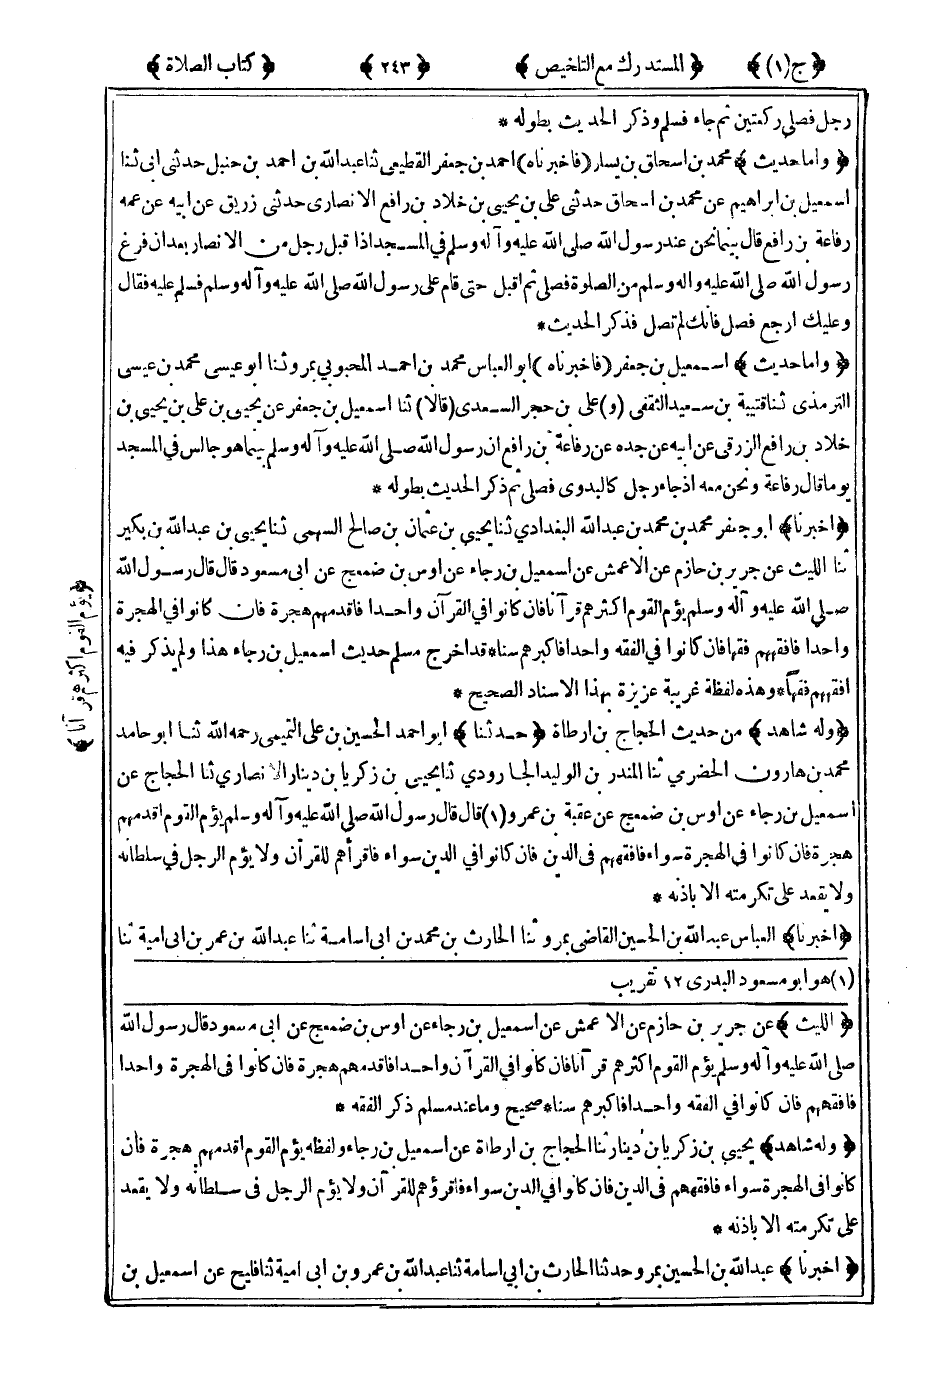 ﴿ ج (١) ﴾ ﴿ المستدرك مع التلخيص ﴾ ﴿ ٢٤٣ ﴾ ﴿ كتاب الصلاة ﴾
رجل فصلى ركعتين ثم جاء فسلم وذكر الحديث بطوله *
﴿ واما حديث ﴾ محمد بن اسحاق بن يسار (فاخبرناه) احمد بن جعفر القطيعى ثنا عبد الله بن احمد بن حنبل حدثنى ابى ثنا
اسمعيل بن ابراهيم عن محمد بن اسحاق حدثنى على بن يحيى بن خلاد بن رافع الانصارى حدثنى زريق عن ابيه عن عمه
رفاعة بن رافع قال بينما نحن عند رسول الله صلى الله عليه وآله وسلم في المسجد اذا قبل رجل من الانصار بعد ان فرغ
رسول الله صلى الله عليه واله وسلم من الصلوة فصلى ثم اقبل حتى قام على رسول الله صلى الله عليه وآله وسلم فسلم عليه فقال
وعليك ارجع فصل فانك لم تصل فذكر الحديث *
﴿ واما حديث ﴾ اسمعيل بن جعفر (فاخبرناه) ابو العباس محمد بن احمد المحبوبي بمرو ثنا ابو عيسى محمد بن عيسى
الترمذى ثنا قتيبة بن سعيد الثقفى (و) على بن حجر السعدى (قالا) ثنا اسمعيل بن جعفر عن يحيى بن على بن يحيى بن
خلاد بن رافع الزرقى عن ابيه عن جده عن رفاعة بن رافع ان رسول الله صلى الله عليه وآله وسلم بينما هو جالس في المسجد
يوما قال رفاعة ونحن معه اذ جاء رجل كالبدوى فصلى ثم ذكر الحديث بطوله *
﴿ اخبرنا ﴾ ابو جعفر محمد بن محمد بن عبد الله البغدادي ثنا يحيى بن عثمان بن صالح السهمى ثنا يحيى بن عبد الله بن بكير
ثنا الليث عن جرير بن حازم عن الاعمش عن اسمعيل بن رجاء عن اوس بن ضمعج عن ابى مسعود قال قال رسول الله
صلى الله عليه وآله وسلم يؤم القوم اكثرهم قرآنا فان كانوا في القرآن واحدا فاقدمهم هجرة فان كانوا في الهجرة
واحدا فافقههم فقها فان كانوا في الفقه واحدا فاكبرهم سنا * قد اخرج مسلم حديث اسمعيل بن رجاء هذا ولم يذكر فيه
افقههم فقها * وهذه لفظة غريبة عزيزة بهذا الاسناد الصحيح *
﴿ وله شاهد ﴾ من حديث الحجاج بن ارطاة ﴿ حدثنا ﴾ ابو احمد الحسين بن على التميمى رحمه الله ثنا ابو حامد
محمد بن هارون الحضرمي ثنا المنذر بن الوليد الجارودي ثنا يحيى بن زكريا بن دينار الانصاري ثنا الحجاج عن
اسمعيل بن رجاء عن اوس بن ضمعج عن عقبة بن عمرو (١) قال قال رسول الله صلى الله عليه وآله وسلم يؤم القوم اقدمهم
هجرة فان كانوا فى الهجرة سواء فافقههم فى الدين فان كانوا في الدين سواء فاقرأهم للقرآن ولا يؤم الرجل في سلطانه
ولا يقعد على تكرمته الا باذنه *
﴿ اخبرنا ﴾ العباس عبد الله بن الحسين القاضى بمرو ثنا الحارث بن محمد بن ابى اسامة ثنا عبد الله بن عمر بن ابى امية ثنا
﴿ يؤم القوم اكثرهم قرآنا ﴾
(١) هو ابو مسعود البدرى ١٢ تقريب
﴿ الليث ﴾ عن جرير بن حازم عن الاعمش عن اسمعيل بن رجاء عن اوس بن ضمعج عن ابى مسعود قال رسول الله
صلى الله عليه وآله وسلم يؤم القوم اكثرهم قرآنا فان كانوا في القرآن واحدا فاقدمهم هجرة فان كانوا فى الهجرة واحدا
فافقههم فان كانوا في الفقه واحدا فاكبرهم سنا * صحيح وما عند مسلم ذكر الفقه *
﴿ وله شاهد ﴾ يحيى بن زكريا بن دينار ثنا الحجاج بن ارطاة عن اسمعيل بن رجاء ولفظه يؤم القوم اقدمهم هجرة فان
كانوا فى الهجرة سواء فافقههم فى الدين فان كانوا في الدين سواء فاقرؤهم للقرآن ولا يؤم الرجل فى سلطانه ولا يقعد
على تكرمته الا باذنه *
﴿ اخبرنا ﴾ عبد الله بن الحسين بمرو حدثنا الحارث بن ابي اسامة ثنا عبد الله بن عمرو بن ابى امية ثنا فليح عن اسمعيل بن